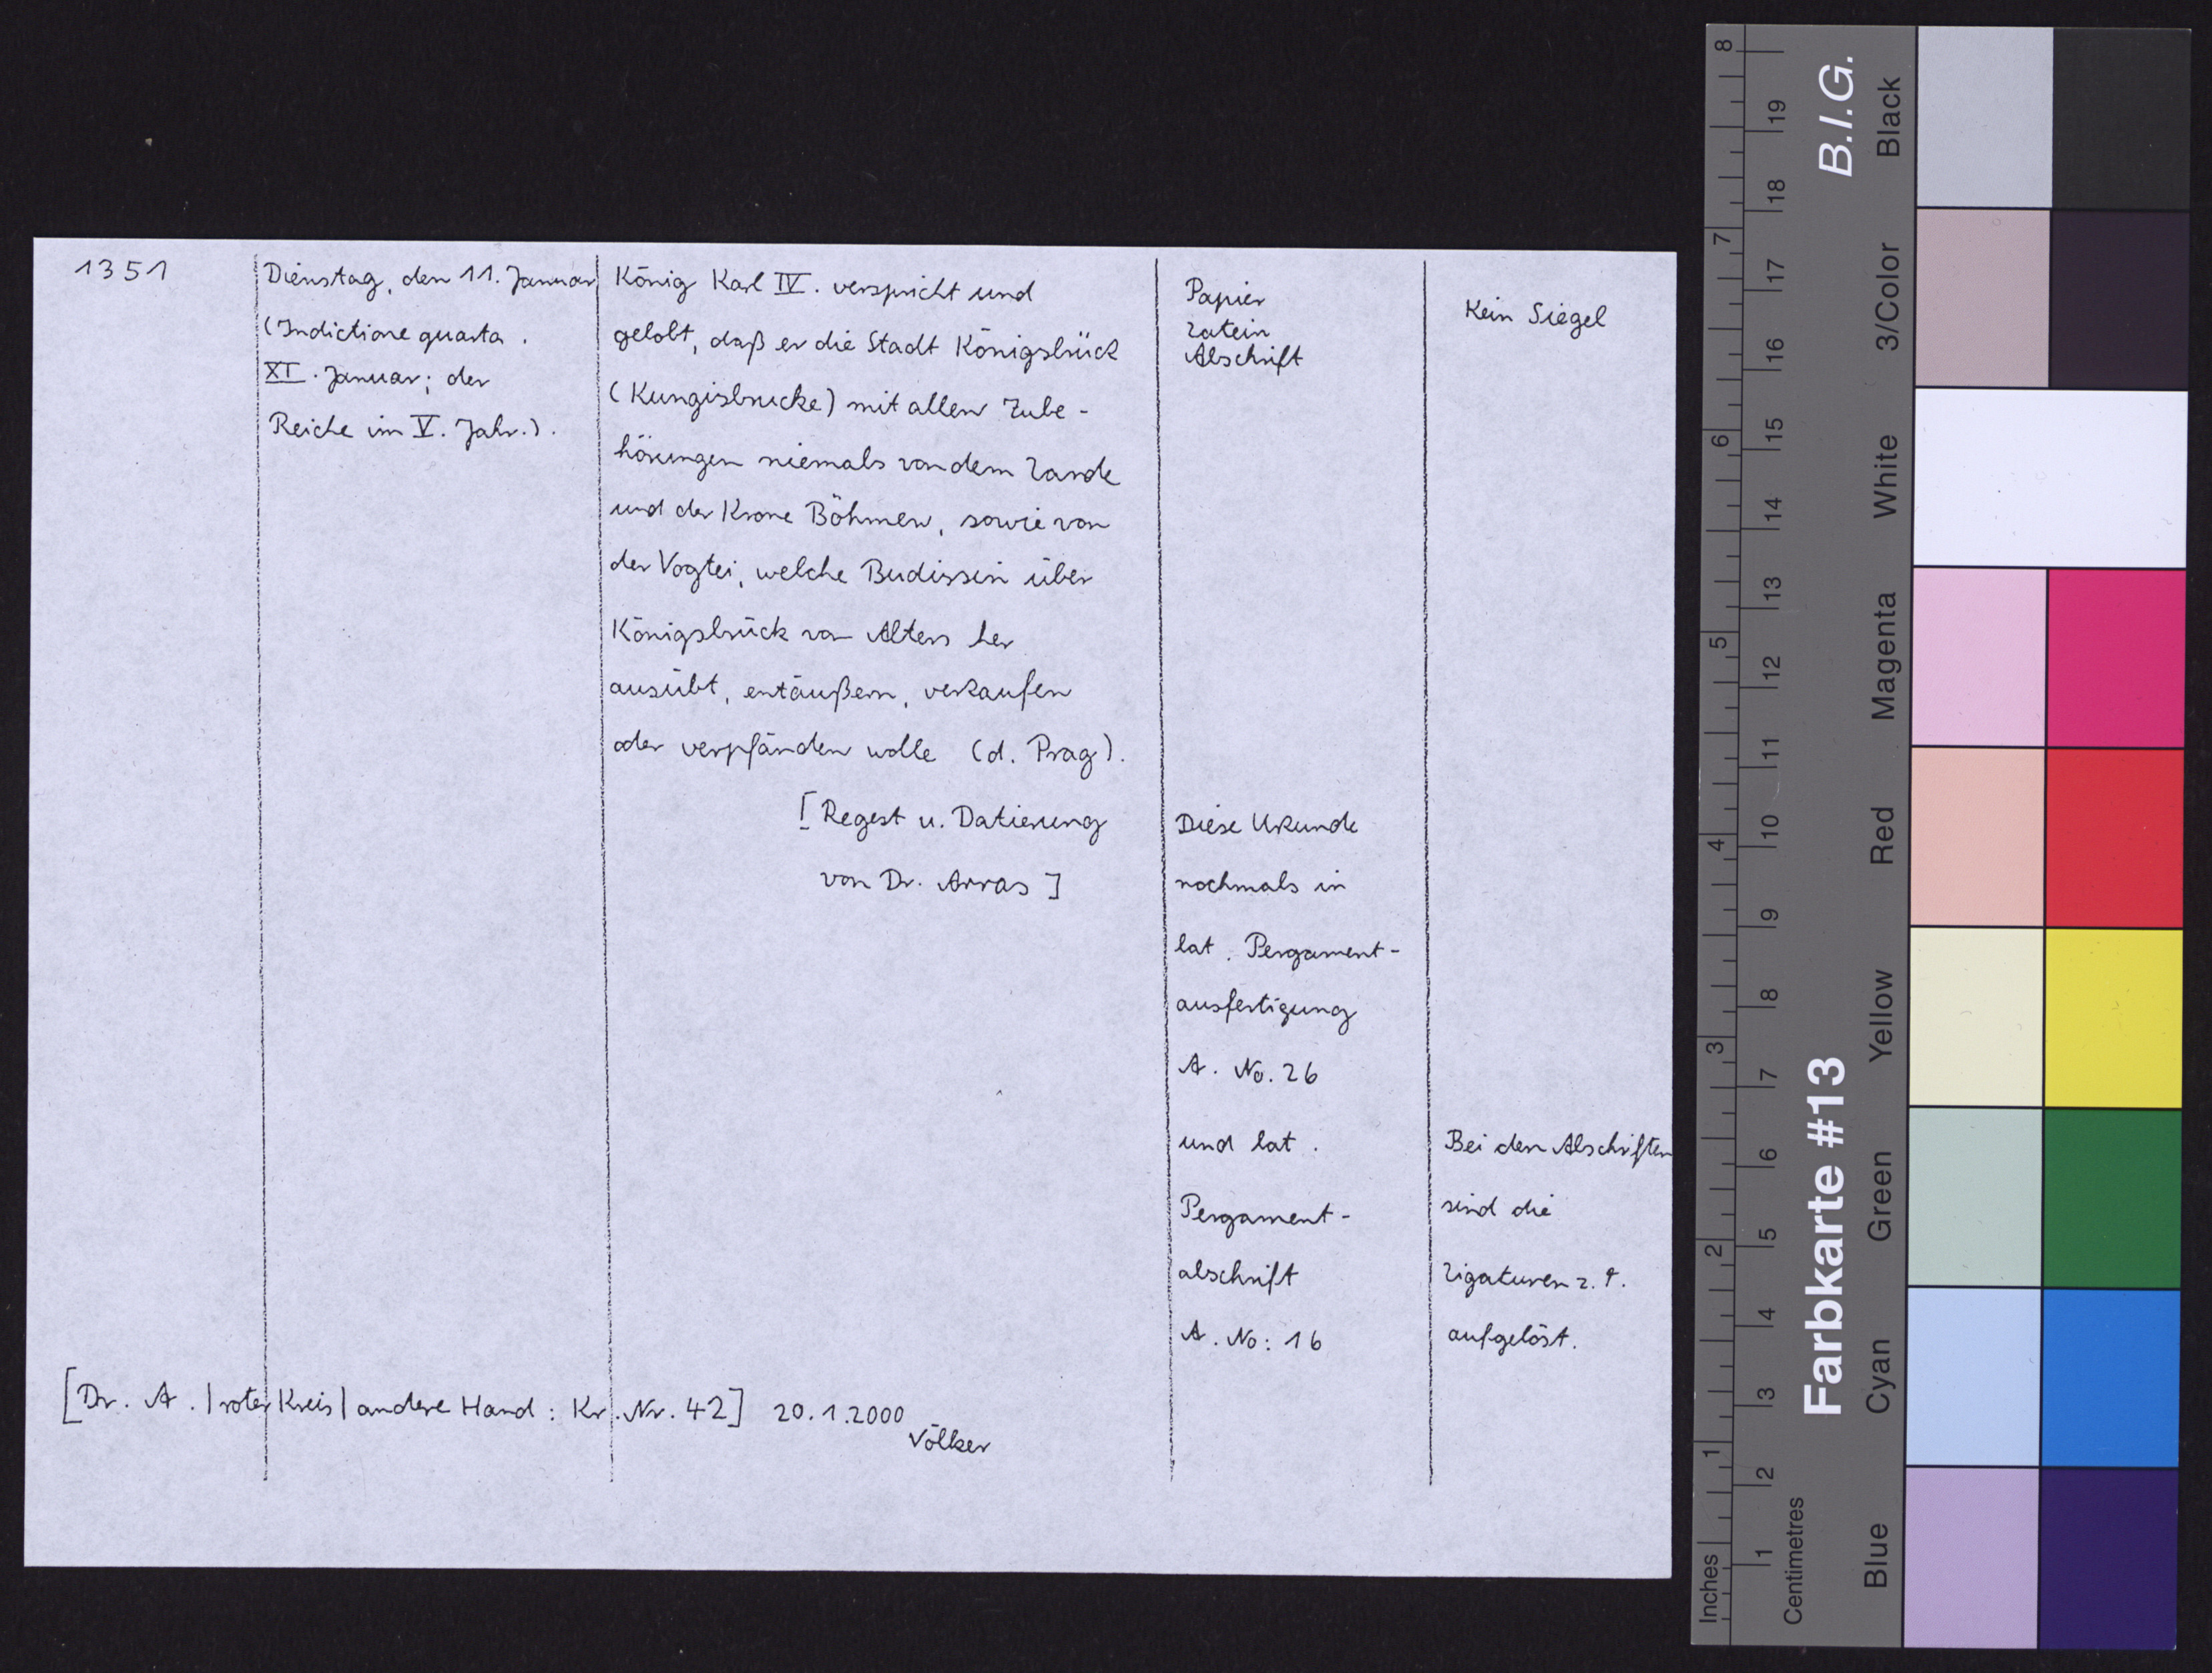 1351
Dienstag, den 11. Januar
(Indictione quarta.
XI. Januar; der
Reiche im V. Jahr.).
König Karl IV. verspricht und
gelobt, daß er die Stadt Königsbrück
(Kungisbrucke) mit allen Zube-
hörungen niemals von dem Lande
und der Krone Böhmen, sowie von
der Vogtei, welche Budissin über
Königsbrück von Alters her
ausübt, entäußern, verkaufen
oder verpfänden wolle (d. Prag).
[Regest u. Datierung
von Dr. Arras]
Papier
Latein
Abschrift
Diese Urkunde
nochmals in
lat. Pergament-
ausfertigung
A. No. 26
und lat.
Pergament-
abschrift
A. No: 16
Kein Siegel
Bei den Abschriften
sind die
Ligaturen z. T.
aufgelöst.
[Dr. A. |roter Kreis| andere Hand: Kr. Nr. 42] 20.1.2000
Völker
Farbkarte #13 B.I.G.
Blue Cyan Green Yellow Red Magenta White 3/Color Black
Centimetres 1 2 3 4 5 6 7 8 9 10 11 12 13 14 15 16 17 18 19
Inches 1 2 3 4 5 6 7 8